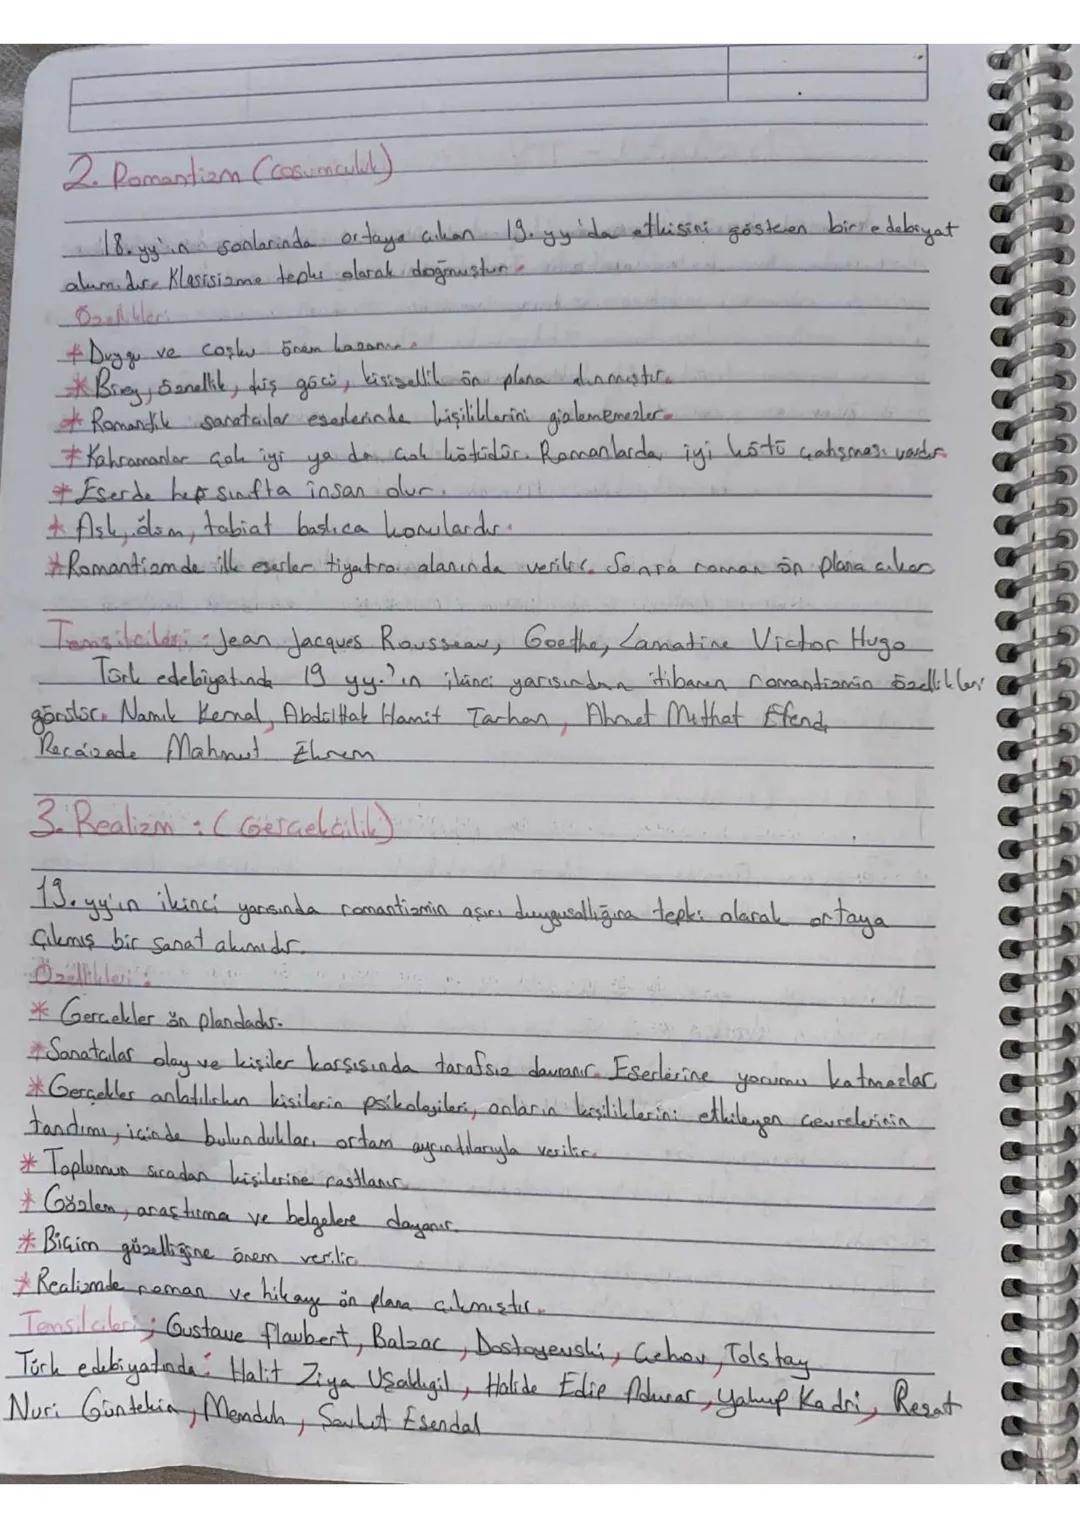 2. Romantizm (Coşumculuk)
18. yy'ın sonlarında ortaya çıkan 19. yy'da etkisini gösteren bir edebiyat
akımıdır. Klasisizme tepki olarak doğmuştur.
Özellikleri:
* Duygu ve coşku önem kazanır.
* Birey, öznellik, düş gücü, kişisellik ön plana alınmıştır.
* Romantik sanatçılar eserlerinde kişiliklerini gizlememezler.
* Kahramanlar çok iyi ya da çok kötüdür. Romanlarda iyi kötü çatışması vardır.
* Eserde her sınıfta insan olur.
* Aşk, ölüm, tabiat başlıca konulardır.
* Romantizmde ilk eserler tiyatro alanında verilir. Sonra roman ön plana çıkar
Temsilcileri: Jean Jacques Rousseau, Goethe, Lamatine Victor Hugo
Türk edebiyatında 19 yy.'ın ikinci yarısından itibaren romantizmin özellikleri
görülür. Namık Kemal, Abdülhak Hamit Tarhan, Ahmet Mithat Efendi,
Recaizade Mahmut Ekrem
3. Realizm : (Gerçekçilik)
19. yy'ın ikinci yarısında romantizmin aşırı duygusallığına tepki olarak ortaya
çıkmış bir sanat akımıdır.
Özellikleri:
* Gerçekler ön plandadır.
* Sanatçılar olay ve kişiler karşısında tarafsız davranır. Eserlerine yorumu katmazlar
* Gerçekler anlatılırken kişilerin psikolojileri, onların kişiliklerini etkileyen çevrelerinin
tanıdımı, içinde bulundukları ortam ayrıntılarıyla verilir.
* Toplumun sıradan kişilerine rastlanır.
* Gözlem, araştırma ve belgelere dayanır.
* Biçim güzelliğine önem verilir.
* Realizmde roman ve hikaye ön plana çıkmıştır.
Temsilcileri; Gustave flaubert, Balzac, Dostoyevski, Çehov, Tolstay
Türk edebiyatında: Halit Ziya Uşaklıgil, Halide Edip Adıvar, Yakup Kadri, Reşat
Nuri Güntekin, Memduh, Şevket Esendal